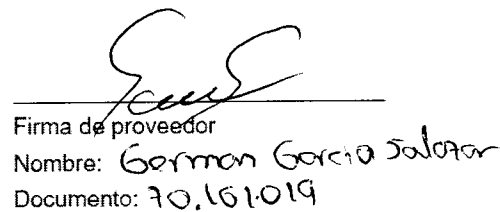 Firma de proveedor
Nombre: German Garcia Salazar
Documento: 70.161.019